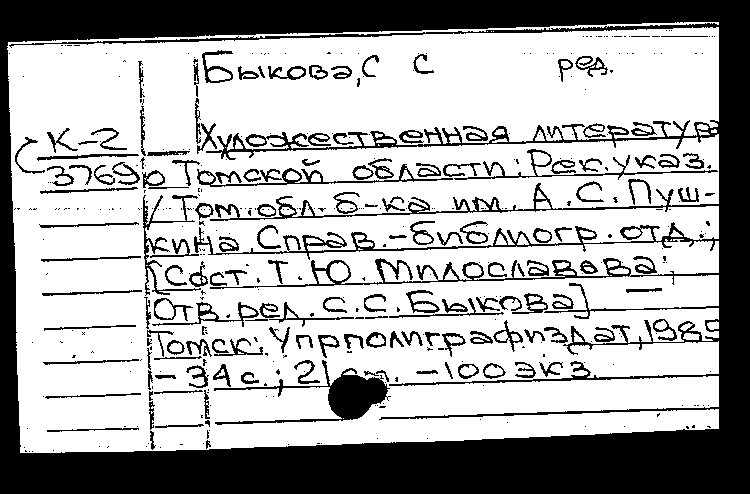 Быкова, С С ред.
К-2 Художественная литература
3769 о Томской области: Рек. указ.
/ Том. обл. б-ка им. А. С. Пуш-
кина. Справ.-библиогр. отд.;
[Сост. Т. Ю. Милославова;
Отв. ред. С. С. Быкова]
Томск: Упрполиграфиздат, 1985
- 34 с.; 21 см. - 100 экз.